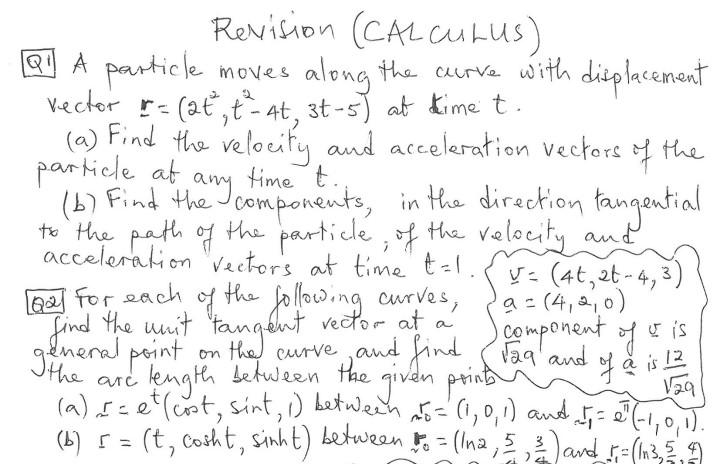 Revision (CALCULUS)
Q1 A particle moves along the curve with displacement
vector r = (2t², t² - 4t, 3t - 5) at time t.
(a) Find the velocity and acceleration vectors of the
particle at any time t.
(b) Find the components, in the direction tangential
to the path of the particle, of the velocity and
acceleration vectors at time t=1.
v = (4t, 2t - 4, 3)
a = (4, 2, 0)
component of v is
√29 and of a is 12/√29
Q2 For each of the following curves,
find the unit tangent vector at a
general point on the curve and find
the arc length between the given points
(a) r = eᵗ(cost, sint, 1) between r₀ = (1, 0, 1) and r₁ = e^π(-1, 0, 1).
(b) r = (t, cosht, sinht) between r₀ = (ln2, 5/4, 3/4) and r₁ = (ln3, 5/, 4/